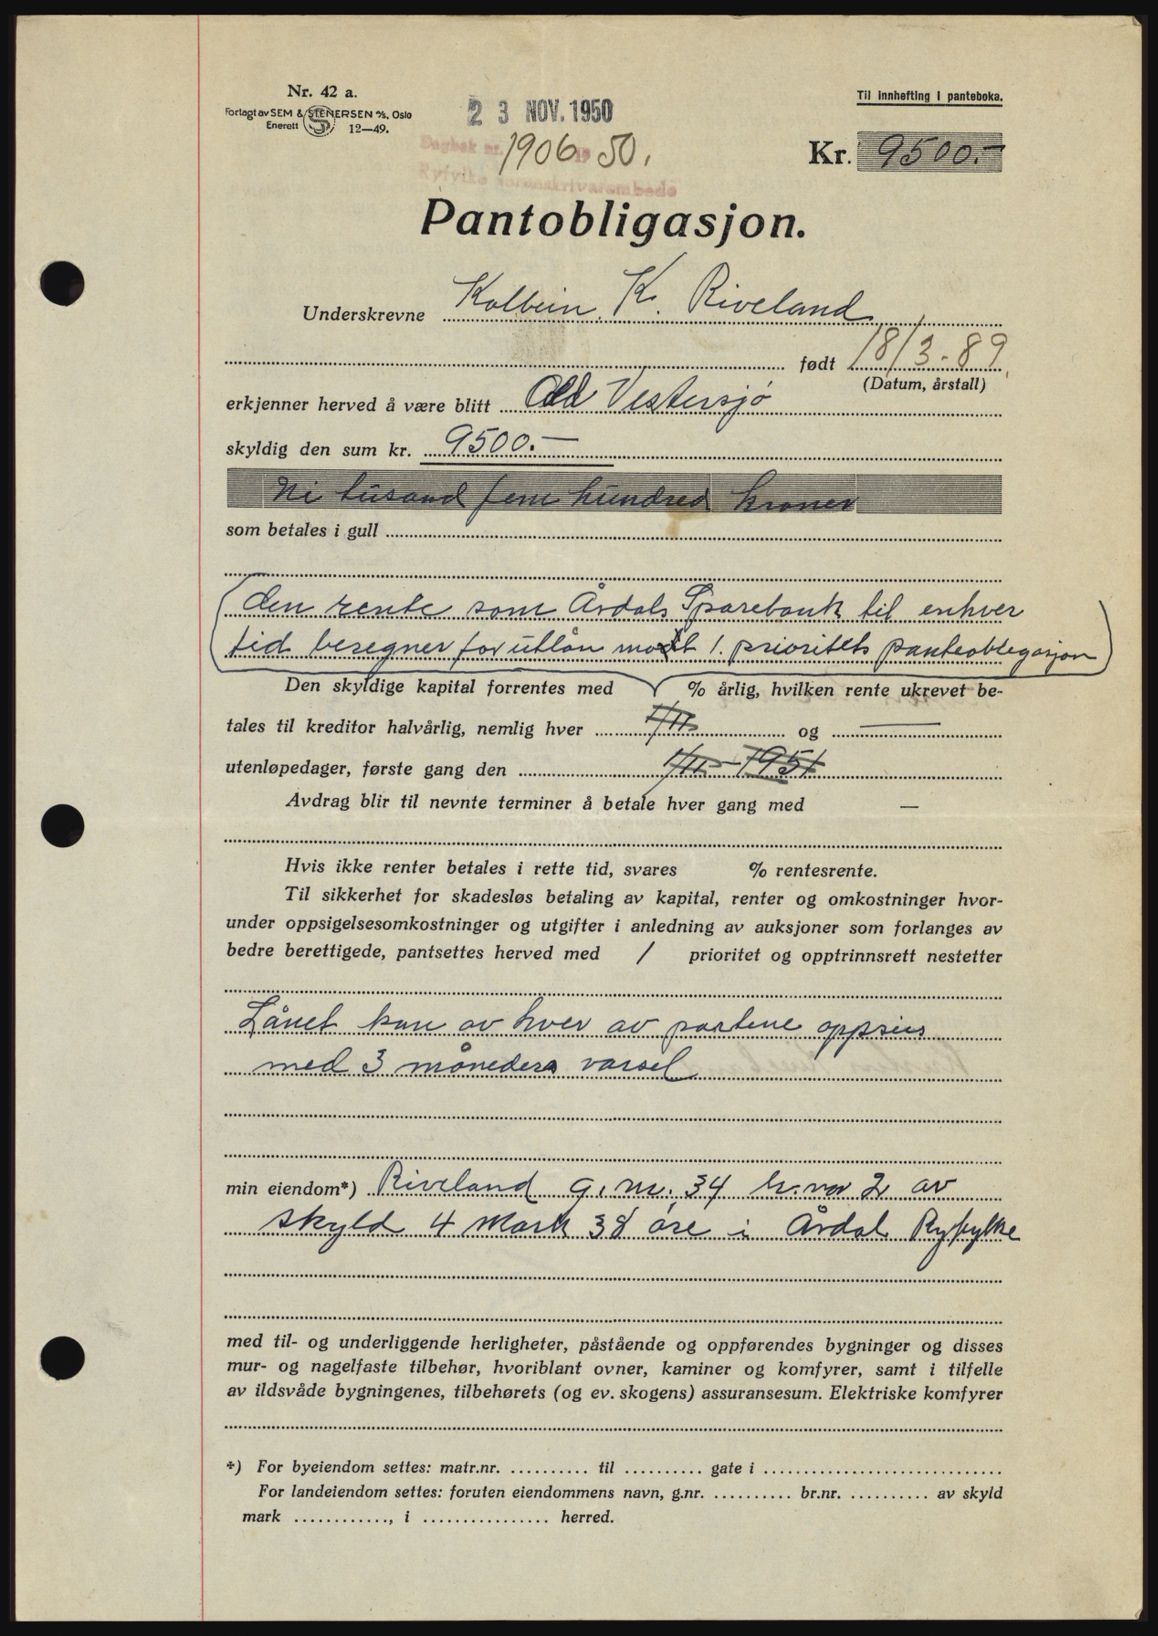 Nr. 42 a.
Forlagt av SEM & STENERSEN A/S, Oslo
Enerett 12—49.
23 NOV. 1950
Til innhefting i panteboka.
Dagbok nr. 1906 19 50.
Ryfylke sorenskrivarembede
Kr. 9500.-
Pantobligasjon.
Underskrevne Kolbein K. Riveland
født 18/3-89
(Datum, årstall)
erkjenner herved å være blitt Odd Vestersjø
skyldig den sum kr. 9500.—
Ni tusand fem hundred kroner
som betales i gull
den rente som Årdals Sparebank til enhver
tid beregner for utlån mot 1. prioritets panteobligasjon
Den skyldige kapital forrentes med % årlig, hvilken rente ukrevet be-
tales til kreditor halvårlig, nemlig hver 1/11 og —
utenløpedager, første gang den 1/11-1951
Avdrag blir til nevnte terminer å betale hver gang med —
Hvis ikke renter betales i rette tid, svares % rentesrente.
Til sikkerhet for skadesløs betaling av kapital, renter og omkostninger hvor-
under oppsigelsesomkostninger og utgifter i anledning av auksjoner som forlanges av
bedre berettigede, pantsettes herved med 1 prioritet og opptrinnsrett nestetter
Lånet kan av hver av partene oppsies
med 3 måneders varsel
min eiendom*) Riveland g.nr. 34 br.nr 2 av
skyld 4 mark 38 øre i Årdal Ryfylke
med til- og underliggende herligheter, påstående og oppførendes bygninger og disses
mur- og nagelfaste tilbehør, hvoriblant ovner, kaminer og komfyrer, samt i tilfelle
av ildsvåde bygningenes, tilbehørets (og ev. skogens) assuransesum. Elektriske komfyrer
*) For byeiendom settes: matr.nr. .......... til .......... gate i ..............................
For landeiendom settes: foruten eiendommens navn, g.nr. .......... br.nr. .......... av skyld
mark ............, i ................ herred.